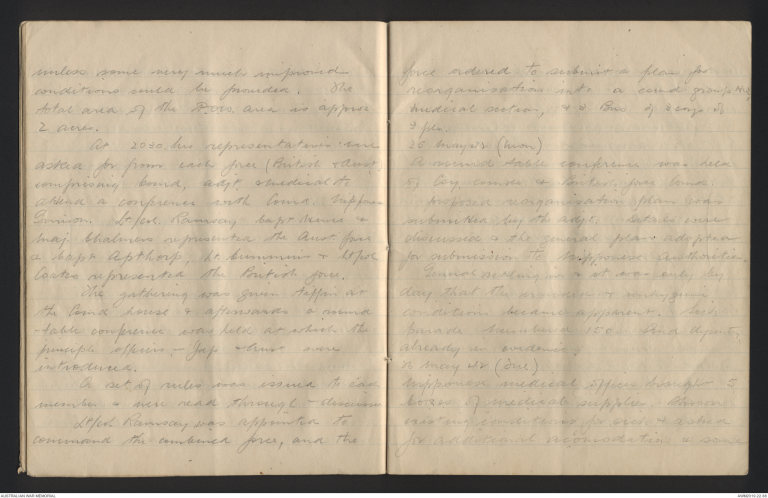 unless some very much improved
conditions could be provided. The
total area of the area is approx
2 acres.
At 2030 hrs representatives were
asked for from each force (British & Aust)
comprising Comd, adjt & medical to
attend a conference with Comd. Nippon
Lt/Col. Ramsay Capt &
Maj. Chalmers represented the Aust. force
& Capt Apthorp, Lt & Lt/Col
Coates represented the British force.
The gathering was given tiffin at
the Comd house & afterwards a round
-table conference was held at which the
principle officers - Jap & Aust were
introduced.
A set of rules was issued to each
member & were read through & discussed
Lt/Col Ramsay was appointed to
command the combined force, and the
force ordered to submit a plan for
reorganisation into a comd group
medical section, & 3 Bns of 3 coys of
3 pln.
25 May (Mon)
A round table conference was held
by Coy comds & British force Comd.
Proposed reorganisation plan was
submitted by the Adjt. Details were
discussed & the general plan adopted
for submission to Nipponese Authorities.
General settling in & it was only by
day that the crowded &
conditions became apparent. Sick
parade numbered 150.
already in evidence.
May (Tue)
Nipponese medical officer brought 5
boxes of medical supplies. Shown
existing conditions for sick & asked
for additional accomodation & some
AUSTRALIAN WAR MEMORIAL